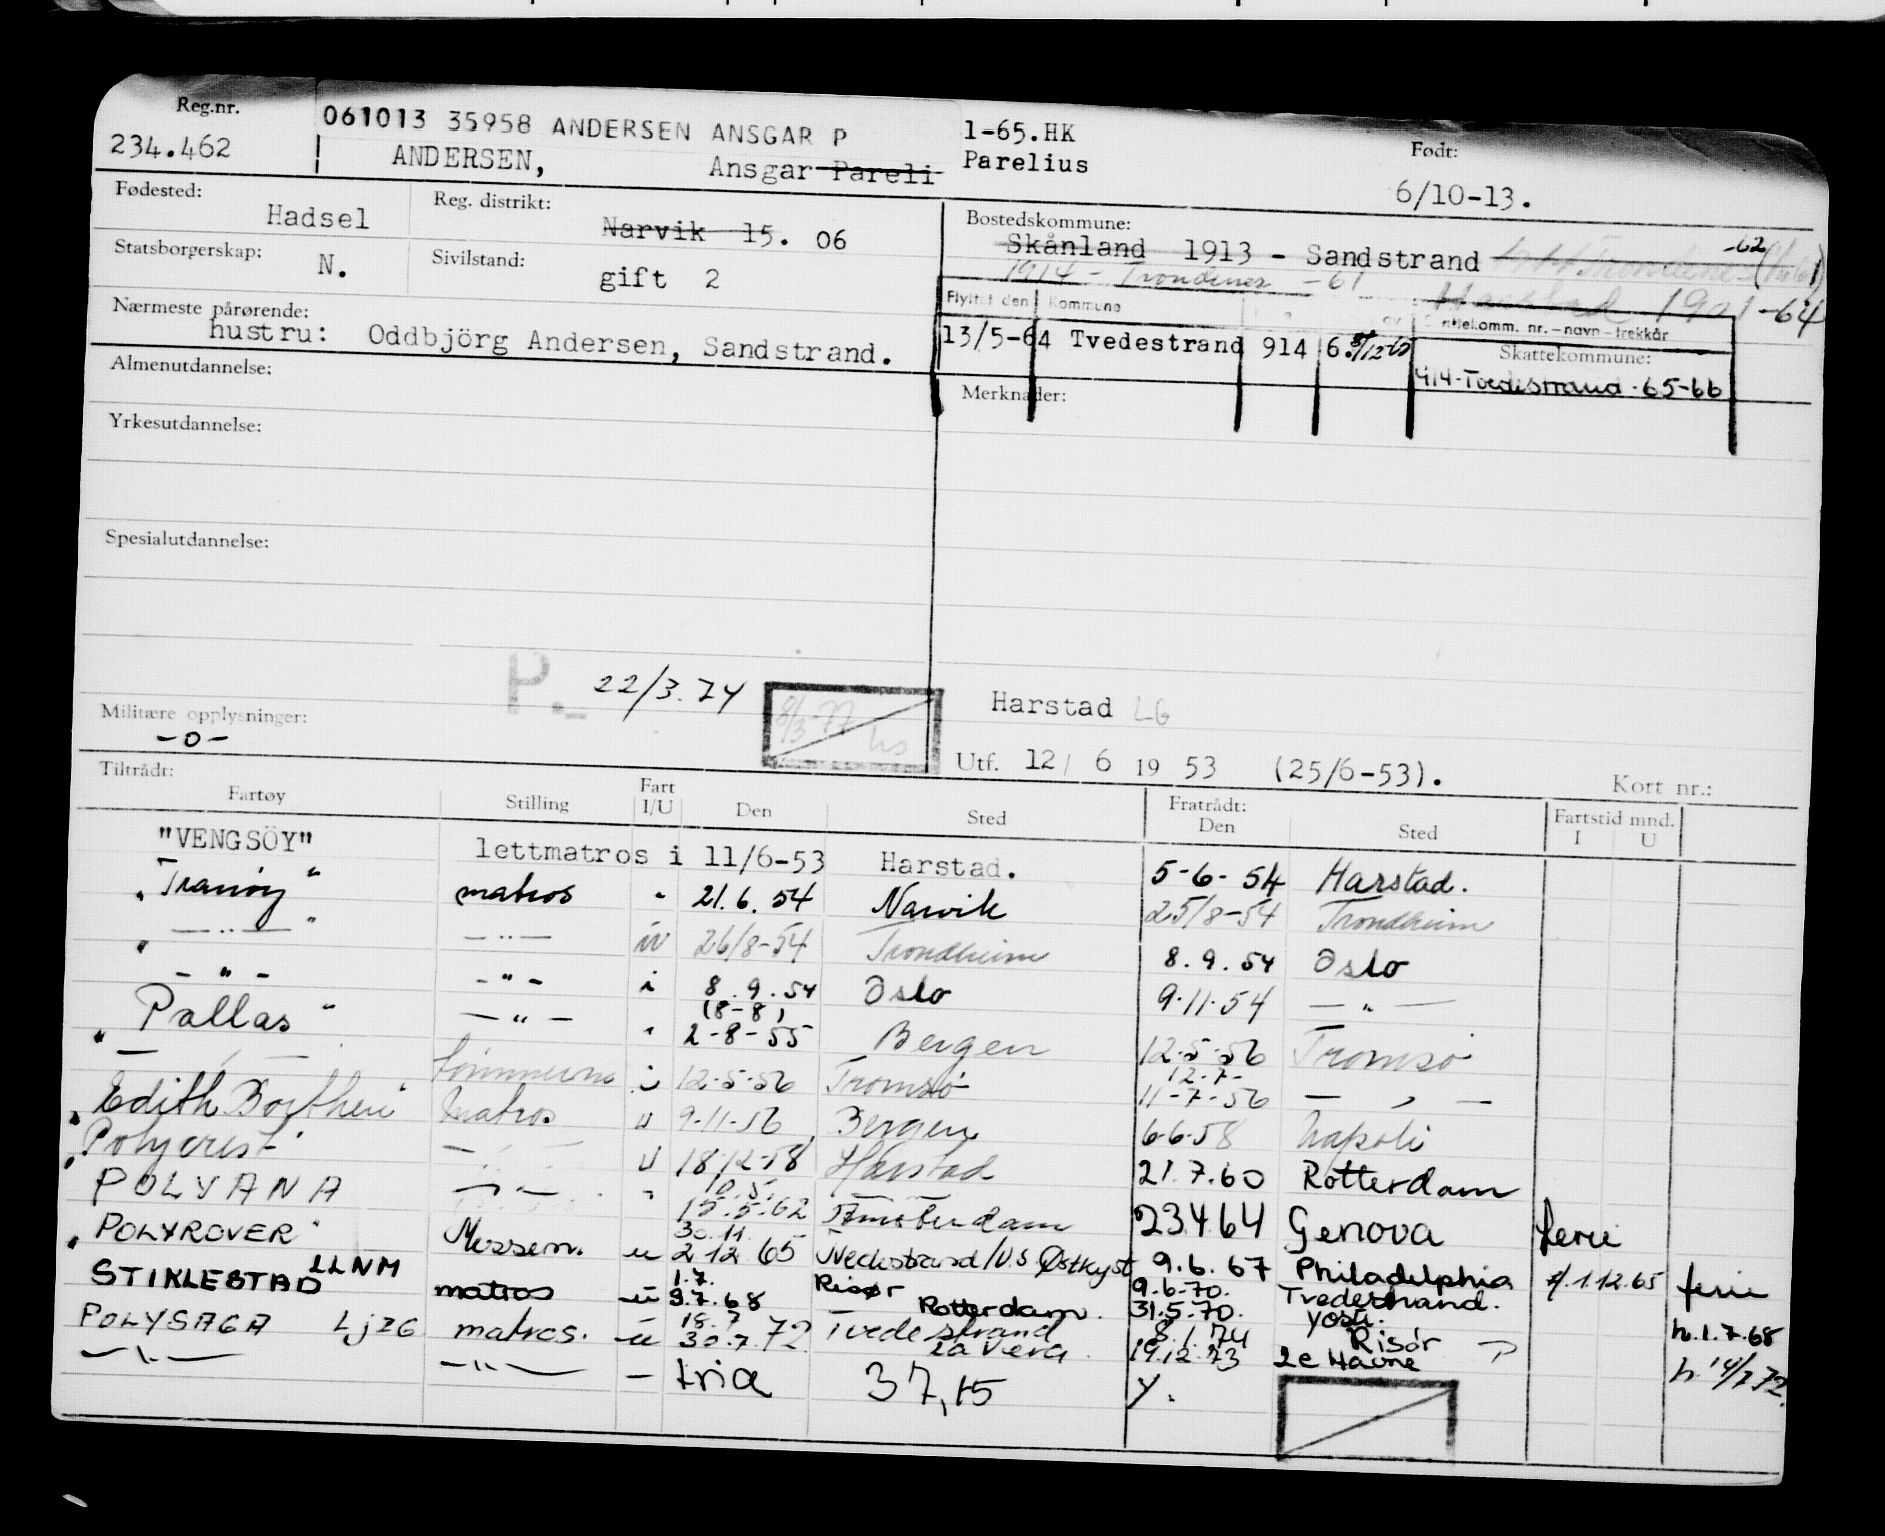 Reg.nr.
234.462
061013 35958 ANDERSEN ANSGAR P
1-65.HK
ANDERSEN, Ansgar Pareli Parelius
Født:
6/10-13.
Fødested:
Hadsel
Reg. distrikt:
Narvik 15. 06
Bostedskommune:
Skånland 1913 - Sandstrand -62
1914 - Trondenes -61
Harstad 1901-64
Statsborgerskap:
N.
Sivilstand:
gift 2
Flyttet den Kommune
Skattekomm. nr. - navn - trekkår
13/5-64 Tvedestrand 914 6
Skattekommune:
914-Tvedestrand-65-66
Nærmeste pårørende:
hustru: Oddbjörg Andersen, Sandstrand.
Almenutdannelse:
Merknader:
Yrkesutdannelse:
Spesialutdannelse:
P.- 22/3.74
8/3-77
Harstad LG
Militære opplysninger:
-o-
Utf. 12/ 6 19 53 (25/6-53).
Kort nr.:
Tiltrådt:
Fartøy Stilling Fart I/U Den Sted
Fratrådt:
Den Sted
Fartstid mnd.
I U
"VENGSÖY" lettmatros i 11/6-53 Harstad. 5-6-54 Harstad.
"Tranöy" matros " 21.6.54 Narvik 25/8-54 Trondheim
" — " — " — " — 26/8-54 Trondheim 8.9.54 Oslo
- " - - " - i 8.9.54 Oslo 9.11.54 — " —
(8-8)
"Pallas" — " — " 2-8-55 Bergen 12.5.56 Tromsø
12.7-
— " — i 12-5-56 Tromsø 11-7-56 — " —
"Edith Borthen" Matros u 9-11-56 Bergen 6-6-58 Napoli
"Polycrest" — " — u 18.12.58 Harstad 21.7.60 Rotterdam
10.5.
POLYANA — " — " 15.5.62 Amsterdam 23.4.64 Genova ferie
30.11
"POLYROVER" Messem. u 2.12.65 Nedestrand/U.S Østkyst 9.6.67 Philadelphia f.1.12.65 ferie
1.7. Risør 9.6.70. Tvedestrand.
STIKLESTAD LLNM matros u 9.7.68 Rotterdam. 31.5.70. h.1.7.68
18.7 Tvedestrand 8.1.74 Risör
POLYSAGA LJZG matros. u 30.7.72 La Vera 19.12.73 Le Havre h.14/7.72.
— " — — " — — tria 37,15 y.